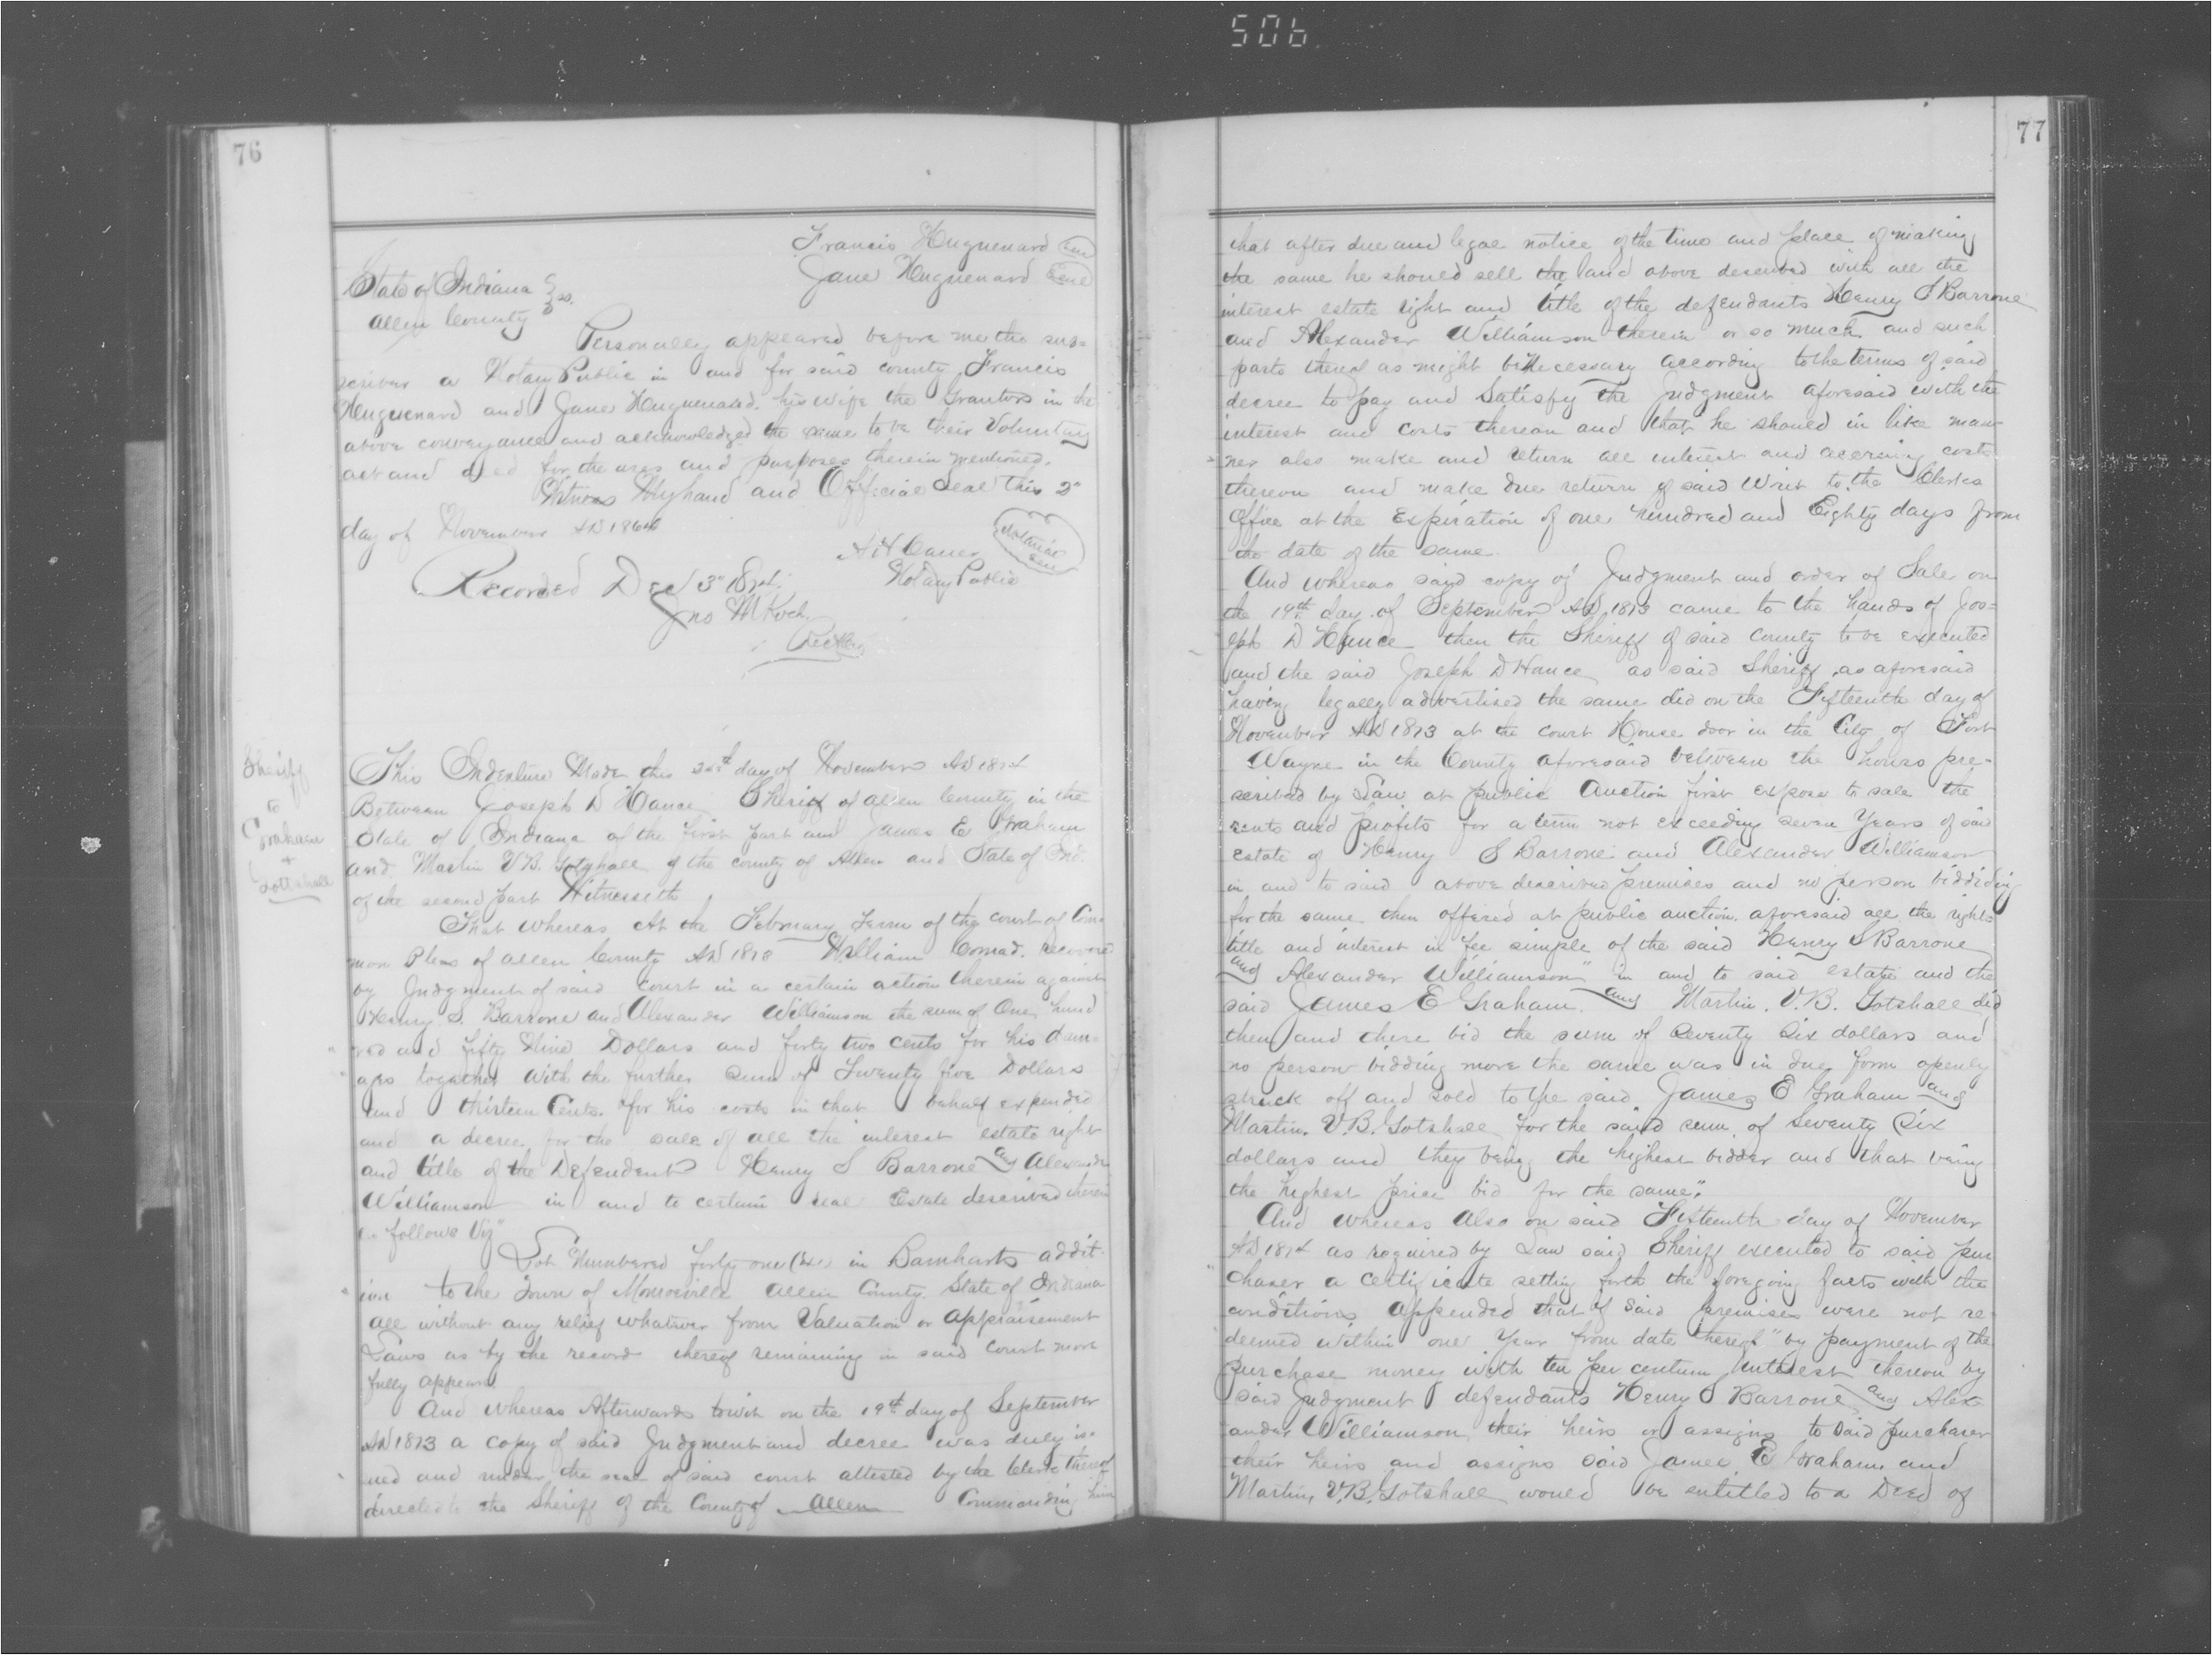 506
76
Francis Huguenard Seal
Jane Huguenard Seal
State of Indiana } ss.
Allen County
Personally appeared before me the sub=
scriber a Notary Public in and for said county Francis
Huguenard and Jane Huguenard his wife the Grantors in the
above conveyance and acknowledged the same to be their Voluntary
act and deed for the uses and purposes therein mentioned.
Witness My hand and Official Seal this 2"
day of November AD 186
Notarial
Seal
Notary Public
Recorded Dec 3" 1874
Jno M Koch
Recorder
Sheriff
to
Graham
+
Gottshall
This Indenture Made this day of November AD 1874
Between Joseph D Hance Sheriff of Allen County in the
State of Indiana of the first part and James E Graham
and Martin V.B. Gotshall of the county of Allen and State of Ind.
of the second part Witnesseth
That whereas At the February Term of the court of Com
mon Pleas of Allen County AD 1873 William Conrad. recovered
by Judgment of said court in a certain action therein against
Henry S. Barrone and Alexander Williamson the sum of One hund
red and fifty Nine Dollars and forty two cents for his dam=
ages together with the further sum of Twenty five Dollars
and thirteen Cents. for his costs in that behalf expended
and a decree for the sale of all the interest estate right
and title of the Defendent Henry S Barrone and Alexander
Williamson in and to certain real Estate described therein
as follows Viz"
Lot Numbered forty one (41) in Barnharts addit
ion to the Town of Monroeville Allen County State of Indiana
all without any relief whatever from Valuation or appraisement
Laws as by the record thereof remaining in said court more
fully appears
And whereas Afterwards towit on the 19th day of September
AD 1873 a copy of said Judgment and decree was duly is=
ued and under the seal of said court attested by the Clerk thereof
directed to the Sheriff of the County of Allen Commanding him
77
that after due and legal notice of the time and place of making
the same he should sell the land above described with all the
interest estate right and title of the defendants Henry S Barrone
and Alexander Williamson therein or so much and such
parts thereof as might be Necessary according to the terms of said
decree to pay and Satisfy the Judgment aforesaid with the
interest and costs thereon and that he should in like man
ner also make and return all interest and accruing costs
thereon and make due return of said Writ to the Clerks
Office at the Expiration of one hundred and Eighty days from
the date of the same.
And whereas said copy of Judgment and order of Sale on
the 19th day of September AD 1873 came to the hands of Jos=
eph D Hance then the Sheriff of said County to be executed
and the said Joseph D Hance as said Sheriff as aforesaid
having legally advertised the same did on the Fifteenth day of
November AD 1873 at the court House door in the City of Fort
Wayne in the County aforesaid between the hours pre-
scribed by Law at public Auction first expose to sale the
rents and profits for a term not exceeding seven Years of said
Estate of Henry S Barrone and Alexander Williamson
in and to said above described premises and no person bidding
for the same then offered at public auction aforesaid all the rights
title and interest in fee simple of the said Henry S Barrone
and Alexander Williamson" in and to said estate and the
said James E Graham and Martin. V.B. Gotshall did
then and there bid the sum of Seventy Six dollars and
no person bidding more the same was in due form openly
struck off and sold to the said James E Graham and
Martin. V.B. Gotshall for the said sum of Seventy Six
dollars and they being the highest bidder and that being
the highest price bid for the same".
And whereas Also on said Fifteenth day of November
AD 1874 as required by Law said Sheriff executed to said pur
chaser a certificate setting forth the foregoing facts with the
conditions appended that if said premises were not re
deemed within one Year from date thereof" by payment of the
purchase money with ten per centum interest thereon by
said Judgment defendants Henry S Barrone and Alex
ander Williamson their heirs or assigns to said purchaser
their heirs and assigns said James E Graham and
Martin, V.B. Gotshall would be entitled to a Deed of